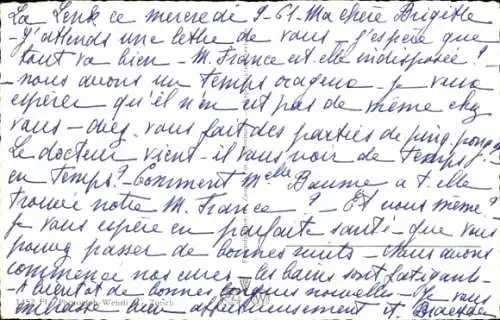 La Lenk ce mercredi 9-61. Ma chère Brigitte
- J'attends une lettre de vous - j'espère que
tout va bien - M. France est elle indisposée? -
- nous avons un temps orageux - Je veux
espérer qu'il n'en est pas de même chez
vous - avez-vous fait des parties de ping pong
Le docteur vient-il vous voir de temps
en temps? - Comment Melle Baume a t-elle
trouvé notre M. France? - Et vous même?
Je vous espère en parfaite santé - que vous
pouvez passer de bonnes nuits - Nous avons
commencé nos cures - les bains sont fatigants -
- A bientôt de bonnes longues nouvelles - Je vous
embrasse bien affectueusement
1453 Photogr. Wehrli Zürich